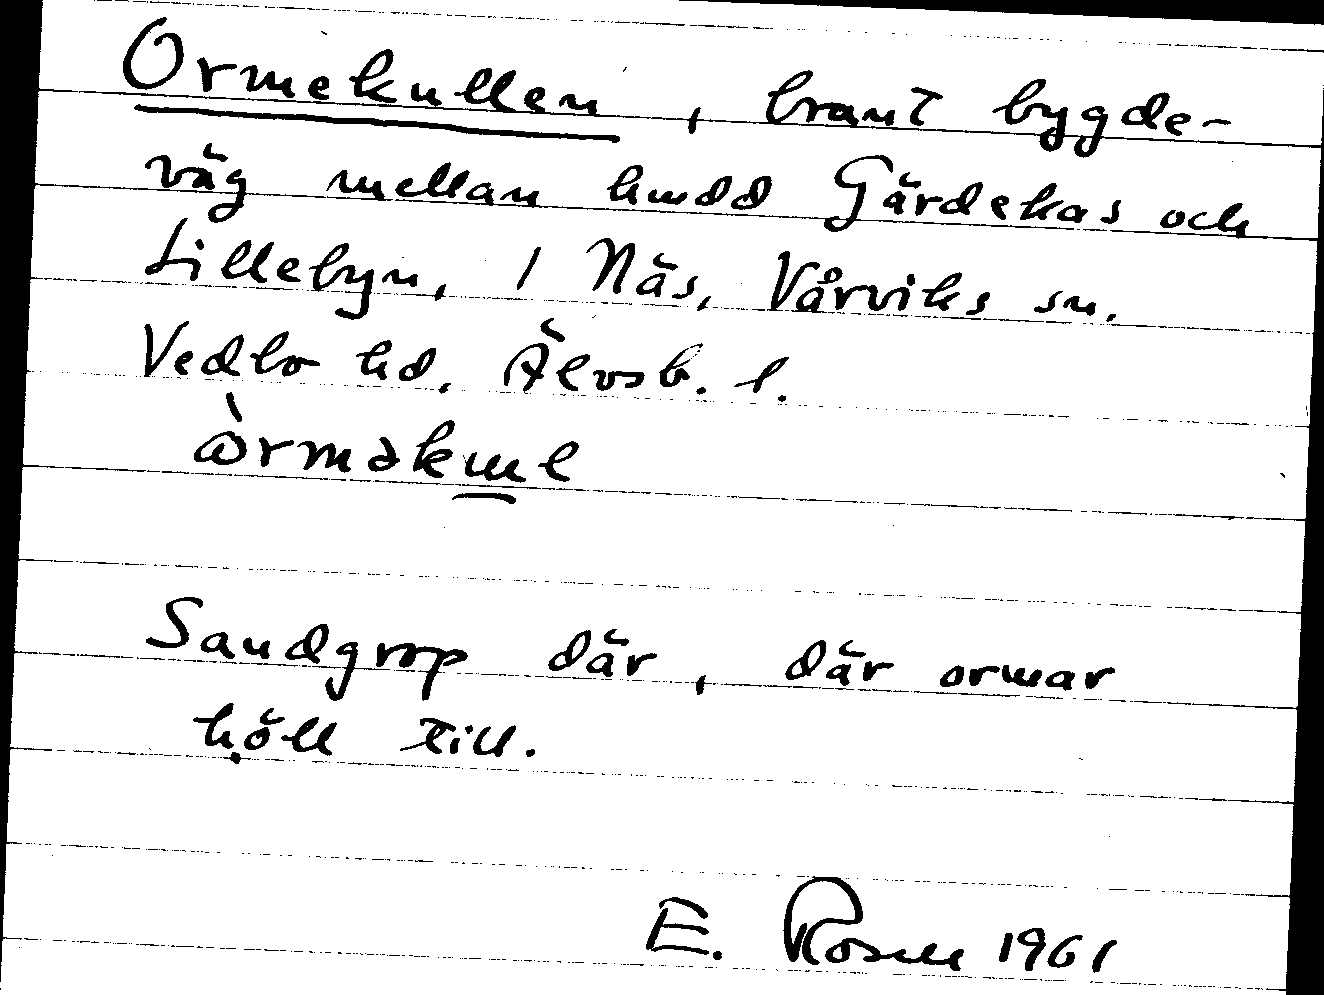 Ormekullen, brant bygde-
väg mellan hmdd Gärdekas och
Lillebyn, 1 Näs, Vårviks sn.
Vedbo hd. Älvsb. l.
Sandgrop där, där ormar
höll till.
E. Rosell 1961